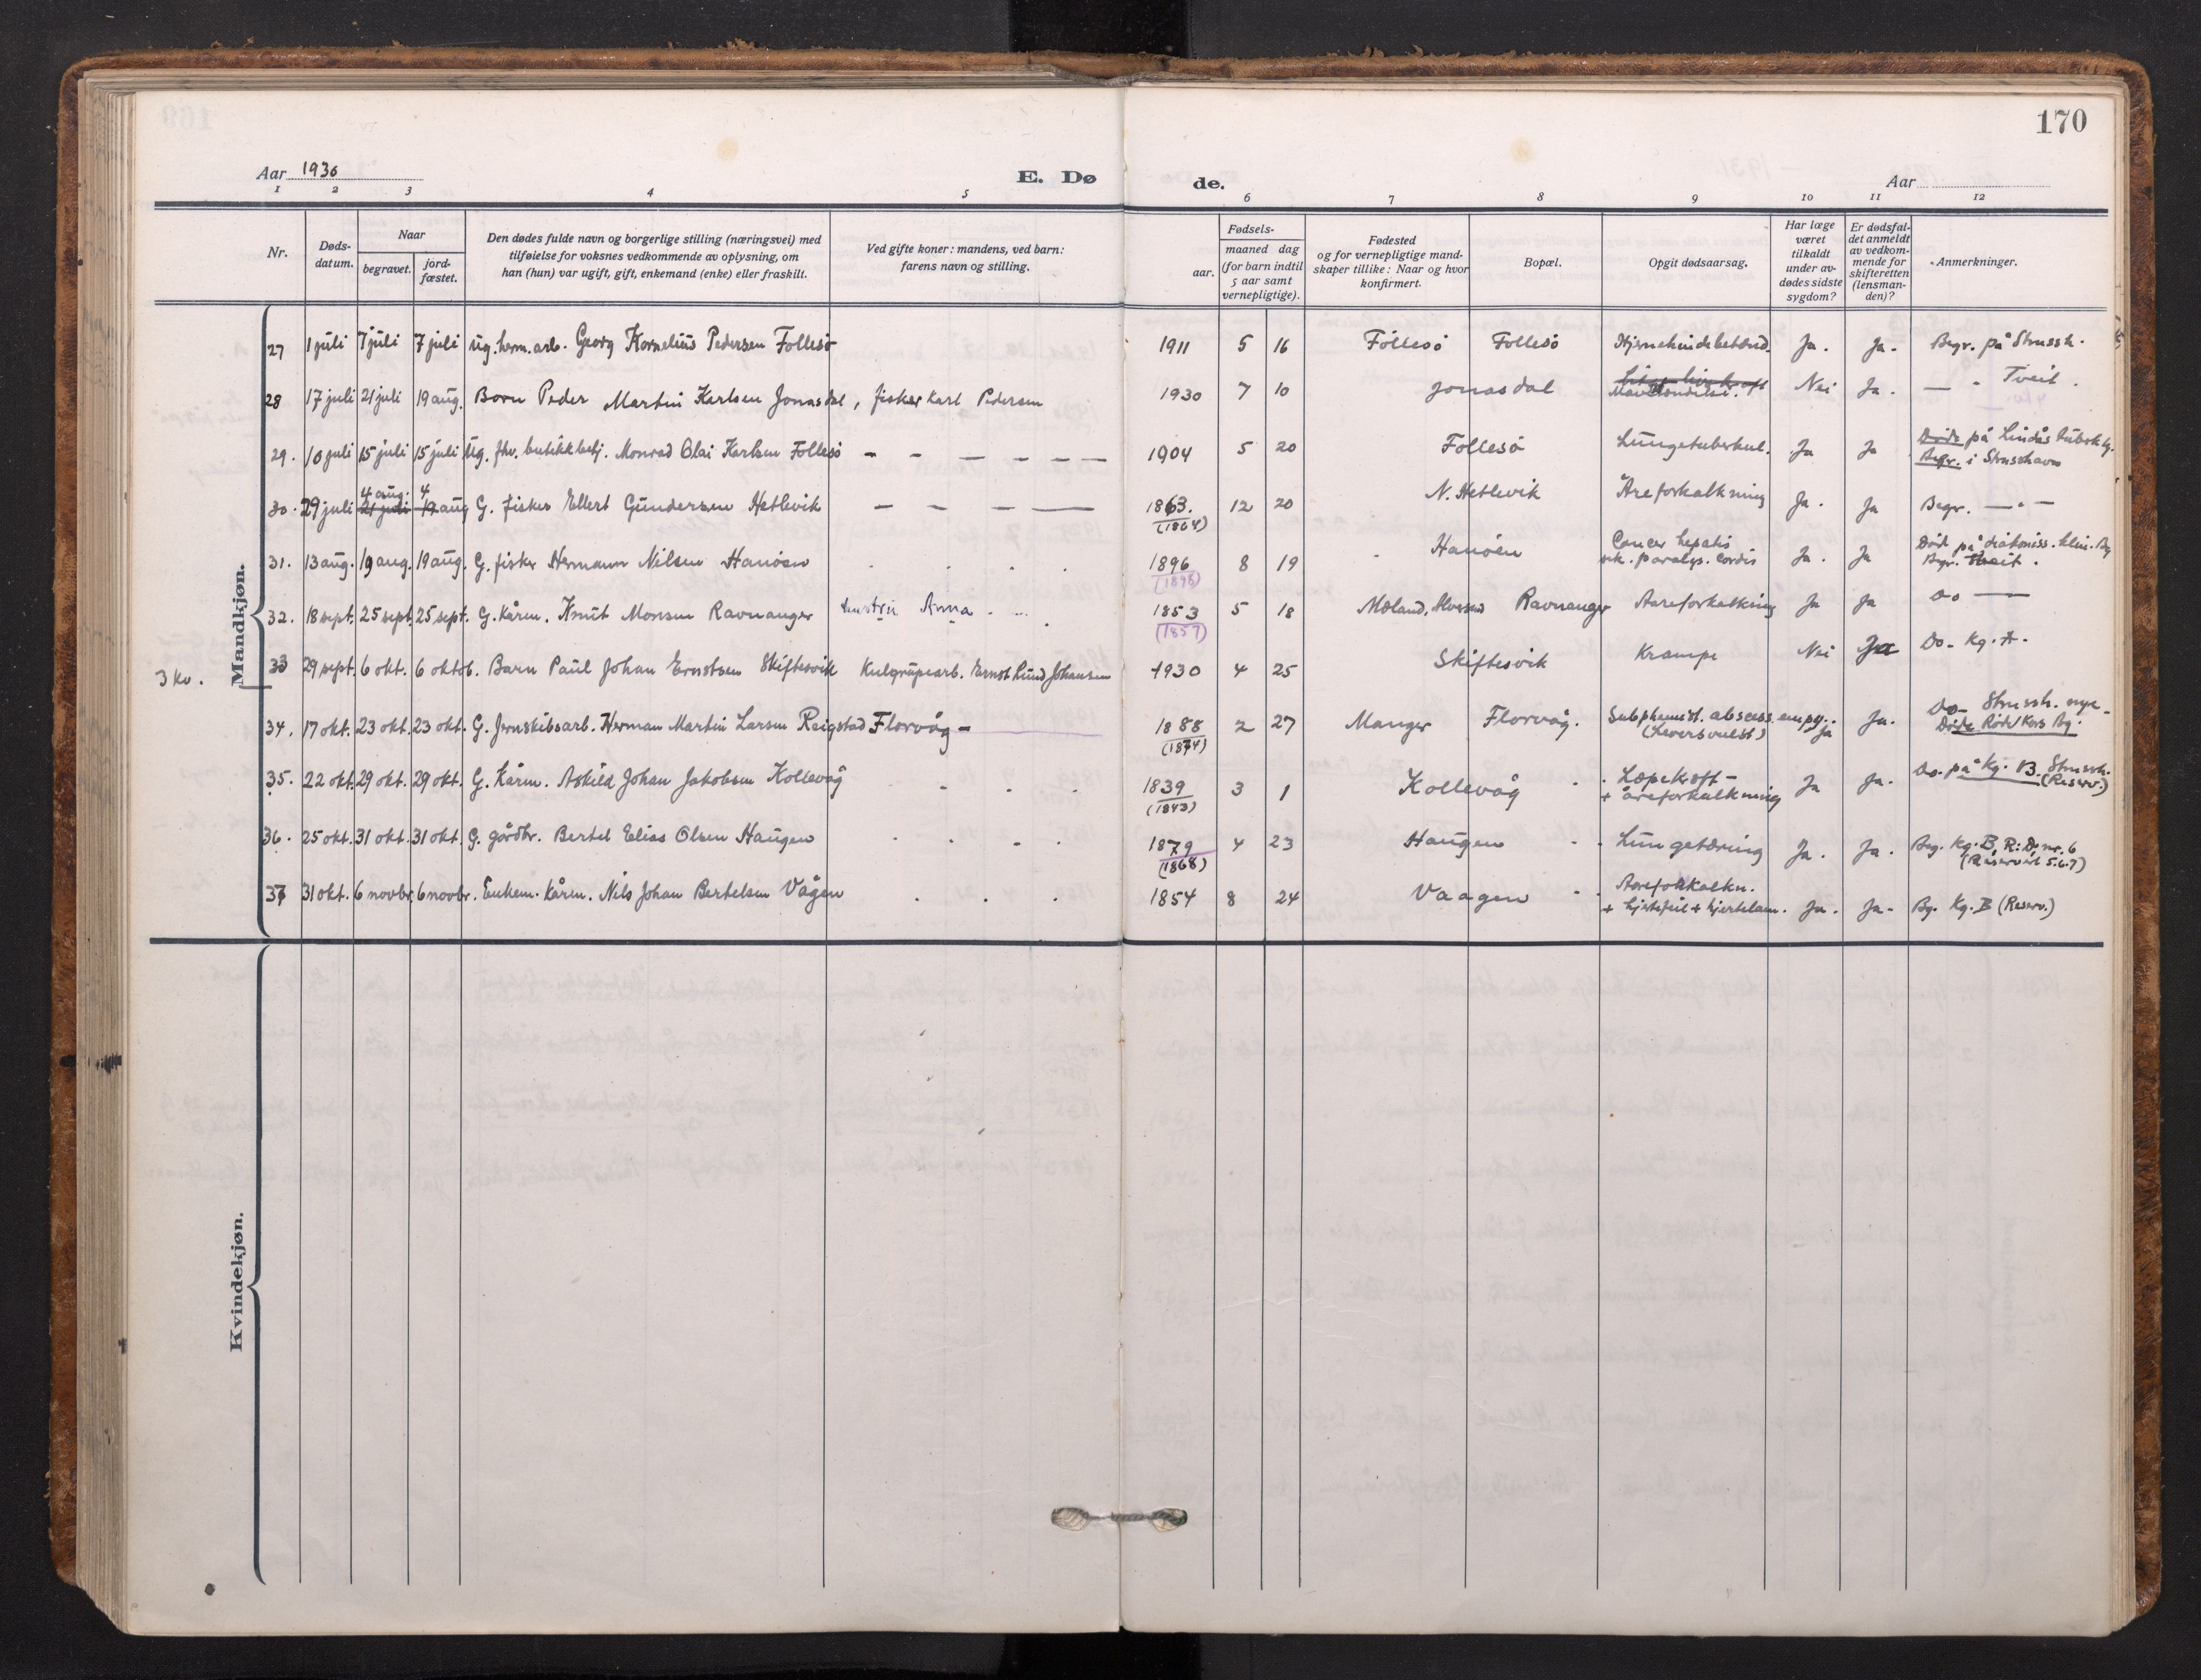 170
Aar 1930
E. Dø
de.
Aar
1 2 3 4 5 6 7 8 9 10 11 12
Nr.
Døds-
datum.
Naar
begravet.
jord-
fæstet.
Den dødes fulde navn og borgerlige stilling (næringsvei) med
tilføielse for voksnes vedkommende av oplysning, om
han (hun) var ugift, gift, enkemand (enke) eller fraskilt.
Ved gifte koner: mandens, ved barn:
farens navn og stilling.
Fødsels-
aar.
maaned dag
(for barn indtil
5 aar samt
vernepligtige).
Fødested
og for vernepligtige mand-
skaper tillike: Naar og hvor
konfirmert.
Bopæl.
Opgit dødsaarsag.
Har læge
været
tilkaldt
under av-
dødes sidste
sygdom?
Er dødsfal-
det anmeldt
av vedkom-
mende for
skifteretten
(lensman-
den)?
Anmerkninger.
Mandkjøn.
27 1 juli 7 juli 7 juli Ug. herm. arb. Georg Kornelius Pedersen Follesø 1911 5 16 Follesø Follesø Hjernehindebetænd. Ja. Ja. Begr. på Strussh.
28 17 juli 21 juli 19 aug. Barn Peder Martin Karlsen Jonasdal, fisker Karl Pedersen 1930 7 10 Jonasdal Nei Ja. — " Tveit.
29. 10 juli 15 juli 15 juli Ug. fhv. butikkbetj. Monrad Olai Karlsen Follesø — — — — — — 1904 5 20 Follesø Lungetuberkul. Ja Ja Døde på Lindås tuberk.hj.
Begr. i Strusshavn
4 aug. 4
30. 29 juli 21 juli 19 aug G. fisker Ellert Gundersen Hetlevik — — — — 1863. 12 20 N. Hetlevik Åreforkalkning Ja. Ja Begr. — " —
(1864)
31. 13 aug. 19 aug. 19 aug. G. fisker Hermann Nilsen Hanøen 1896 8 19 Hanøen Cancer hepatis Ja. Ja Død på diakoniss. klin. Bg
(1898) paralys. cordis Begr. Tveit.
32. 18 sept. 25 sept. 25 sept. G. kårm. Knut Monsen Ravnanger hustru Anna 1853 5 18 Mæland, Ravnanger Aareforkalkning Ja Ja Do —
(1857)
3 kv. 33 29 sept. 6 okt. 6 oktob. Barn Paul Johan Ernstsen Skiftesvik Kulgrubearb. Ernst Lund Johansen 1930 4 25 Skiftesvik Krampe Nei Ja Do. Kg. A.
34. 17 okt. 23 okt. 23 okt. G. Jernskibsarb. Herman Martin Larsen Reigstad Florvåg — 1888 2 27 Manger Florvåg. Subphrenisk. abscess. empy. Ja Ja. Do. Strussh. nye
(1874) (Leversvulst) Døde Røde Kors Bg.
35. 22 okt. 29 okt. 29 okt. G. kårm. Askild Johan Jakobsen Kollevåg 1839 3 1 Kollevåg Læpekræft — Ja Ja. Do. på Kg. B. Strussh.
(1843) + åreforkalkning (Reserv.)
36. 25 okt. 31 okt. 31 okt. G. gårdbr. Bertel Elias Olsen Haugen 1879 4 23 Haugen Lungetæring Ja. Ja. Beg. Kg. B, R: D. nr. 6
(1868) (Reservert 5.6.7)
37 31 okt. 6 novbr. 6 novbr. Enkem. kårm. Nils Johan Bertelsen Vågen 1854 8 24 Vaagen Aareforkalkn. Ja. Ja. Bg. Kg. B (Reserv.)
+ hjertefeil + hjertelam.
Kvindekjøn.